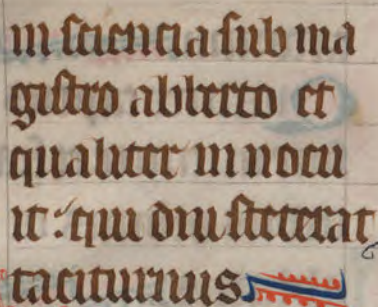 in sciencia sub ma
gistro alberto et
qualiter innotu
it: qui diu steterat
taciturnus